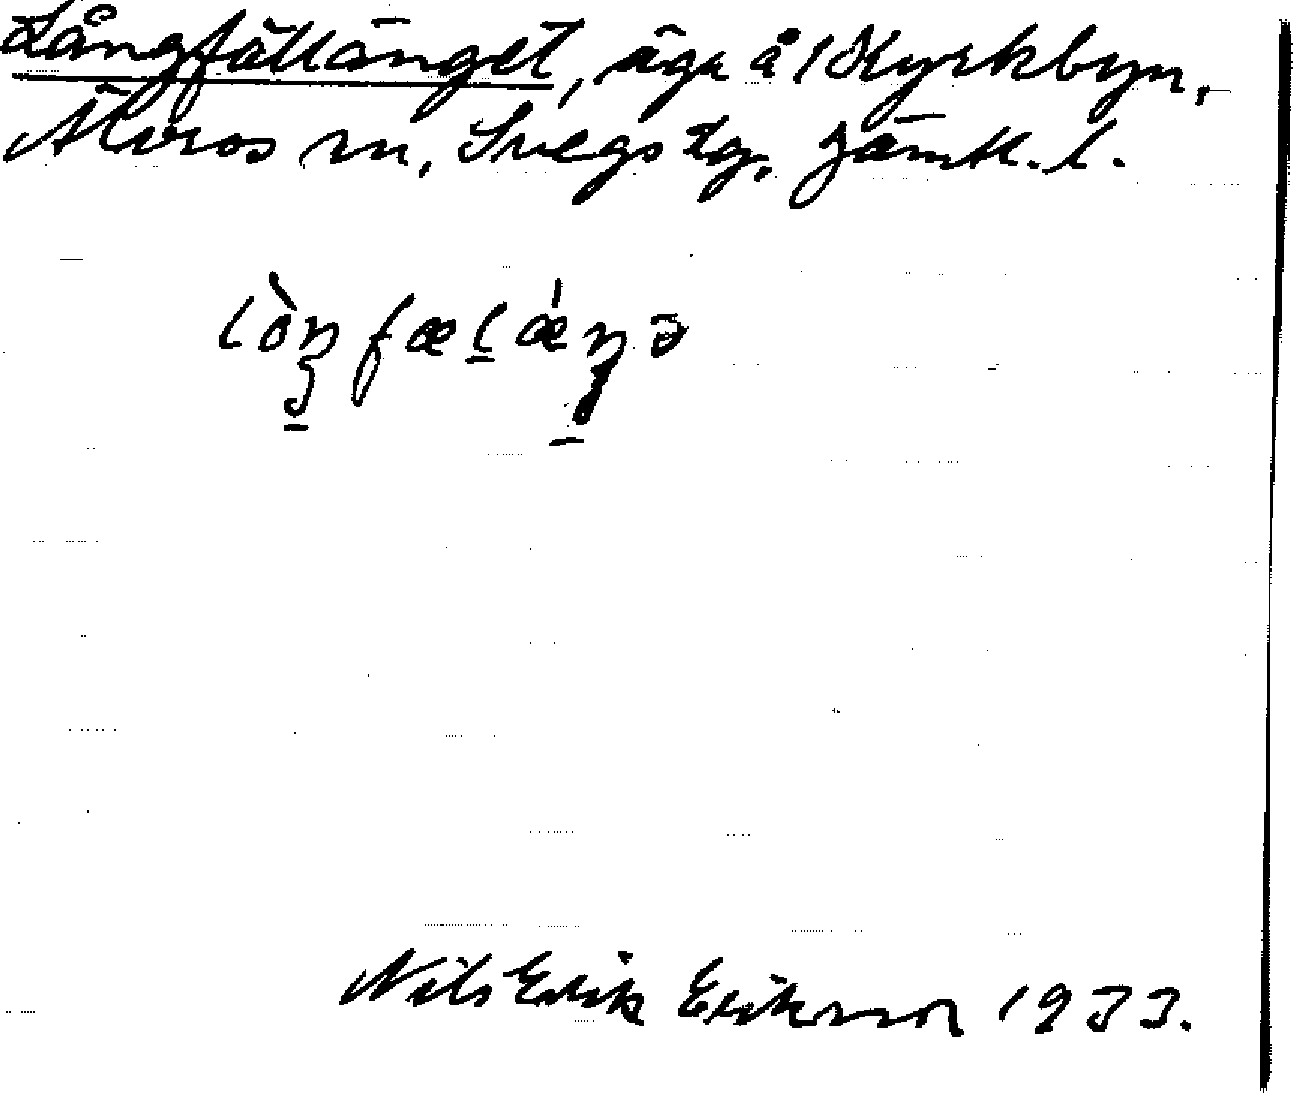 Långfällänget, äga å 1 Kyrkbyn,
Älvros sn, Svegs tg, Jämtl. l.
lòŋfælǽŋə
Nils Erik Eriksson 1933.